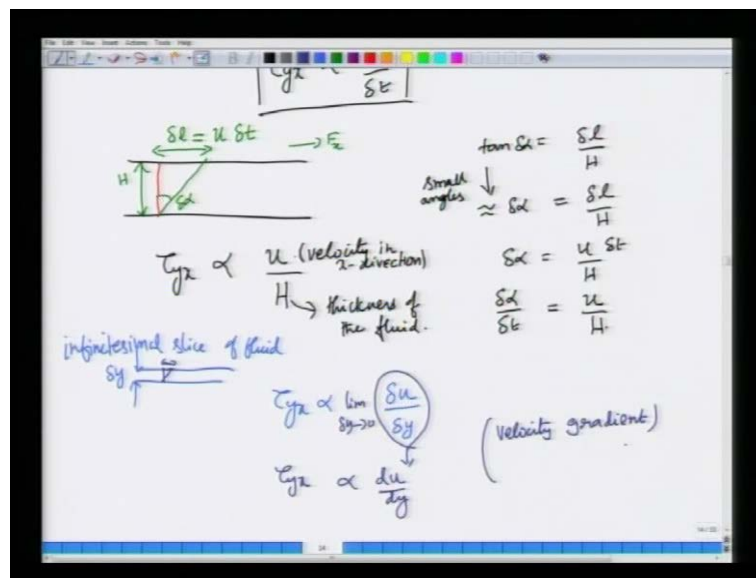 File Edit View Insert Actions Tools Help
τyx ∝ / δt
δl = u δt → Fx
H δα
tan δα = δl/H
small angles ↓ ≈ δα = δl/H
τyx ∝ u/H (velocity in x-direction)
→ thickness of the fluid.
δα = u δt/H
δα/δt = u/H
infinitesimal slice of fluid
δy
τyx ∝ lim δy→0 δu/δy
(velocity gradient)
τyx ∝ du/dy